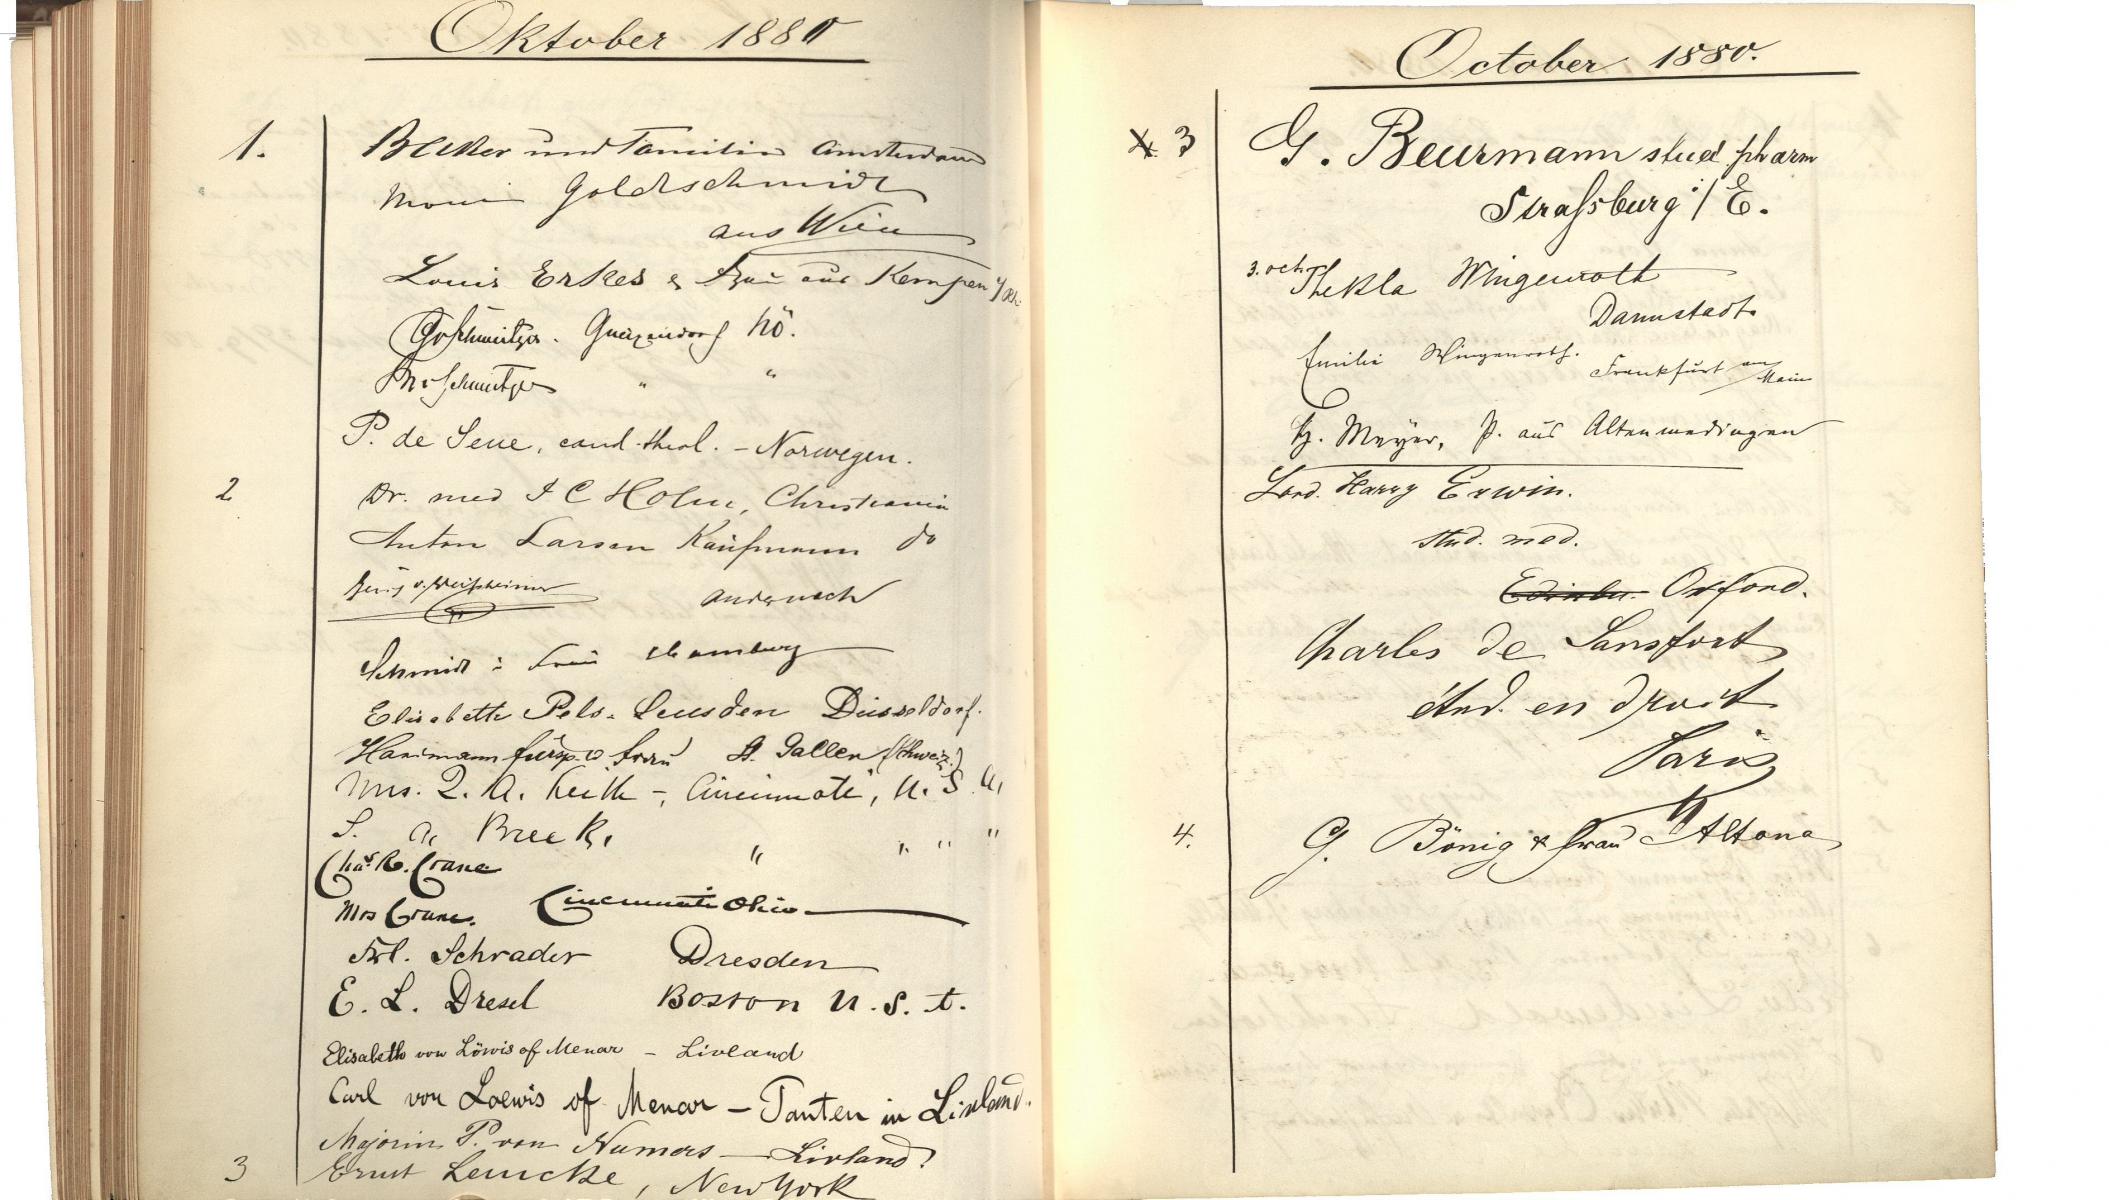 Oktober 1880
1. Becker und Familie Amsterdam
Goldschmidt
aus Wien
Louis Erkes & Frau aus Kempen a/Rh.
Schmitz.
Schmitz " "
P. de Seue, cand. theol. – Norwegen.
2 Dr. med J C Holm, Christiania
Anton Larsen Kaufmann do
Andernach
Schmidt u Frau Hamburg
Elisabeth Pels-Leusden Düsseldorf.
Frau St. Gallen (Schweiz)
Mrs. Q. A. Keith –, Cincinnati, U. S. A,
S. A. Breck, " " " "
Chas R. Crane
Mrs Crane. Cincinnati Ohio
Frl. Schrader Dresden
E. L. Dresel Boston U. S. A.
Elisabeth von Löwis of Menar – Livland
Carl von Loewis of Menar – Panten in Livland.
Majorin P. von Numers – Livland.
3 Ernst Lemcke, New York
October 1880.
3 G. Beurmann stud. pharm
Straßsburg i/E.
3. oct. Thekla Wingenroth
Darmstadt.
Emilie Wingenroth. Frankfurt am Main
H. Meyer, P. aus Altenmedingen
Lord. Harry Erwin.
stud. med.
Edinbu. Oxford.
Charles de Sansfort
étud. en droit
Paris
4. G. Bönig & Frau Altona